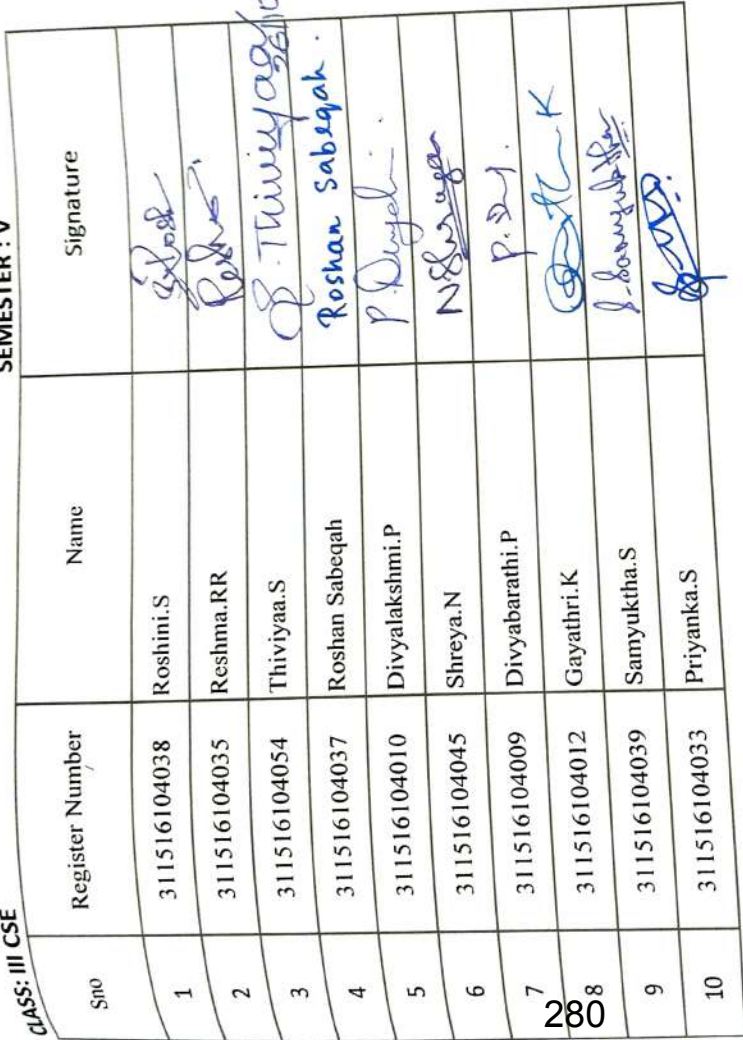 CLASS: III CSE SEMESTER : V
Sno Register Number Name Signature
1 311516104038 Roshini.S
2 311516104035 Reshma.RR
3 311516104054 Thiviyaa.S S.Thiviyaa
4 311516104037 Roshan Sabeqah Roshan Sabeqah.
5 311516104010 Divyalakshmi.P
6 311516104045 Shreya.N
7 311516104009 Divyabarathi.P
8 311516104012 Gayathri.K
9 311516104039 Samyuktha.S
10 311516104033 Priyanka.S
280